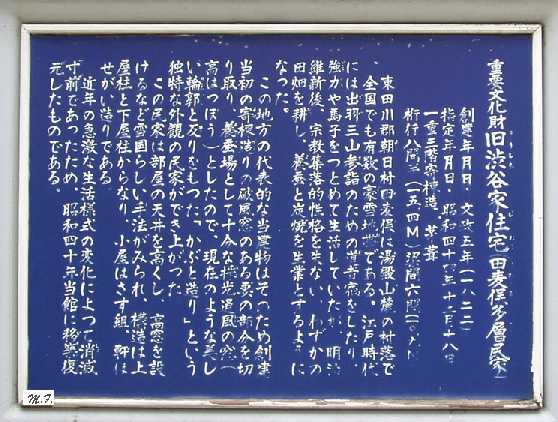 重要文化財旧渋谷家住宅(田麦俣多層民家)
創建年月日・文政五年(一八二二)
指定年月日・昭和四十四年十二月十八日
一重三階寄棟造 茅葺
桁行八間三(一五.四M)梁間六間(一
東田川郡朝日村田麦俣は湯殿山麓の村落で
、全国でも有数の豪雪地帯である。江戸時代
には出羽三山参詣のための道者宿をしたり
強力や馬子をつとめて生活していたが、明治
維新後、宗教集落的性格を失ない、わずかの
田畑を耕し、養蚕と炭焼を生業とするように
なった。
この地方の代表的な当建物はそのため創建
当初の寄棟造りの破風窓のある妻の部分を切
り取り、養蚕場として十分な採光通風の窓(
高はっぽう)としたので、現在のような美し
い輪郭と反りをもった「かぶと造り」という
独特な外観の民家ができ上がった
この民家は部屋の天井を高くし、高窓を設
けるなど雪国らしい手法がみられ、構造は上
屋柱と下屋柱からなり、小屋はさす組、軒は
せがい造りである
近年の急激な生活様式の変化によって消滅
寸前であったため、昭和四十年当館に移築復
元したものである。
M.F.